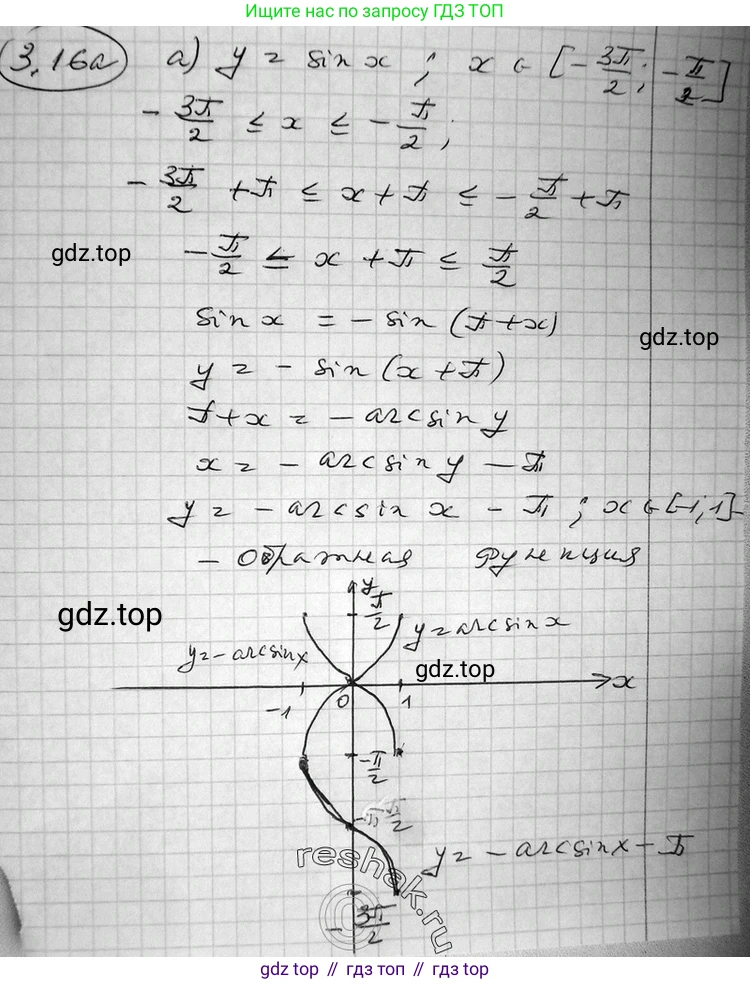 Ищите нас по запросу ГДЗ ТОП
3.16a а) y = sin x ; x ∈ [-3π/2; -π/2]
-3π/2 ≤ x ≤ -π/2;
-3π/2 + π ≤ x + π ≤ -π/2 + π
gdz.top
-π/2 ≤ x + π ≤ π/2
sin x = - sin (π + x)
gdz.top
y = - sin (x + π)
π + x = - arcsin y
x = - arcsin y - π
y = - arcsin x - π ; x ∈ [-1, 1] -
- Обратная функция
gdz.top
y
π/2
y = arcsin x
y = - arcsin x
gdz.top
x
-1
0
1
-π/2
-π
y = - arcsin x - π
reshak.ru
-3π/2
gdz top // гдз топ // gdz top